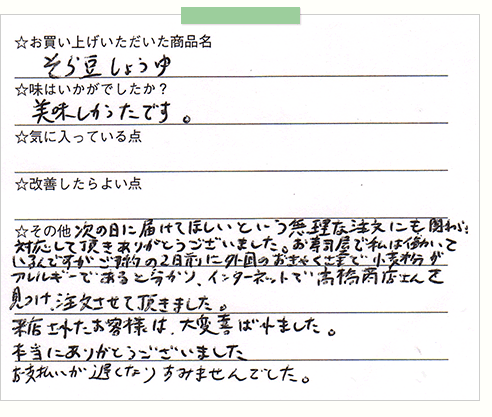 ☆お買い上げいただいた商品名
そら豆しょうゆ
☆味はいかがでしたか？
美味しかったです。
☆気に入っている点
☆改善したらよい点
☆その他 次の日に届けてほしいという無理な注文にも関わらず
対応して頂きありがとうございました。お寿司屋で私は働いて
いるんですがご予約の2日前に外国のおきゃくさまで小麦粉が
アレルギーであると分かり、インターネットで高橋商店さんを
見つけ、注文させて頂きました。
来店されたお客様は、大変喜ばれました。
本当にありがとうございました
お支払いが遅くなりすみませんでした。